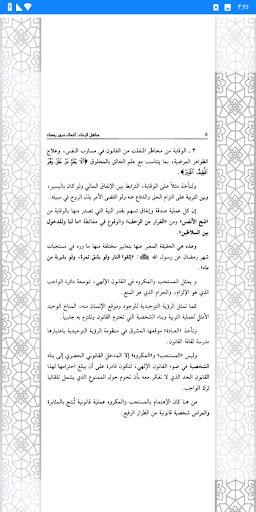 ٣:٢٥
٨ مناهل الرجاء.. أعمال شهر رمضان
٣ ـ الوقاية من مخاطر التفلت من القانون في مسارب النفس، وعلاج
الظواهر المرضية، بما يتناسب مع علم الخالق بالمخلوق ﴿أَلَا يَعْلَمُ مَنْ خَلَقَ وَهُوَ
اللَّطِيفُ الْخَبِيرُ﴾.
ولنأخذ مثلاً على الوقاية، الترابط بين الإنفاق المالي ولو كان باليسير،
وبين التربية على التزام الحق والدفاع عنه ولو اقتضى الأمر بذل الروح في سبيله.
إن كل عملية صدقة وإنفاق تسهم بقدر النية التي تصدر منها بالوقاية من
«شح الأنفس» ومن «الفرار من الزحف» والوقوع في مغالطة «ما لنا والدخول
بين السلاطين».
وهذه هي الحقيقة المعبر عنها بتعابير مختلفة منها ما ورد في مستحبات
شهر رمضان عن رسول الله : «اتقوا النار ولو بشق تمرة، ولو بشربة من
ماء».
و يمثل المستحب والمكروه في القانون الإلهي، توسعة دائرة الواجب
الذي هو الإلزام، والحرام الذي هو المنع.
كما تمثل الرؤية التوحيدية للوجود وموقع الإنسان منه، المناخ الوحيد
الأمثل لعملية التربية وبناء الشخصية التي تحترم القانون وتلتزم به جذرياً.
وتأخذ «العبادة» موقعها المشرق في منظومة الرؤية التوحيدية باعتبارها
مدرسة ثقافة القانون.
وليس «المستحب» والمكروه» إلا المدخل القانوني الحصري إلى بناء
الشخصية في ضوء القانون الإلهي، لتكون قادرة على أن يبلغ احترامها لهذا
القانون الحد الذي لا تفكر معه بأن تحوم حول الممنوع الذي يشمل تلقائيا
ترك الواجب.
من هنا كان الإهتمام بالمستحب والمكروه عملية قانونية تُنتج بالمثابرة
والمراس شخصية قانونية من الطراز الرفيع.